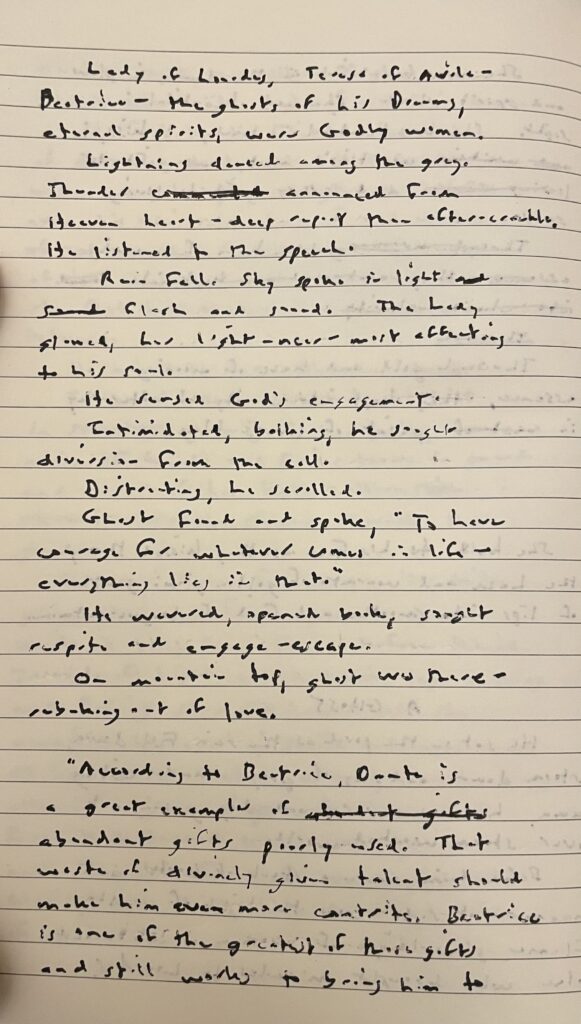 Lady of Lourdes, Terese of Avila -
Beatrice - the ghosts of his Dreams,
eternal spirits, were Godly women.
Lightning danced among the grey.
Thunder announced from
Heaven heart - deep report then after-crackle.
He listened to the speech.
Rain fell. Sky spoke in light and
sound flash and sound. The Lady
glowed, her light - near - most affecting
to his soul.
He sensed God's engagement.
Intimidated, balking, he sought
diversion from the call.
Distracting, he scrolled.
Ghost found and spoke, "To have
courage for whatever comes in life -
everything lies in that."
He wavered, opened book, sought
respite and engage - escape.
On mountain top, ghost was there -
rebuking out of love.
"According to Beatrice, Dante is
a great example of abundant gifts
abundant gifts poorly used. That
waste of divinely given talent should
make him even more contrite. Beatrice
is one of the greatest of those gifts
and still works to bring him to